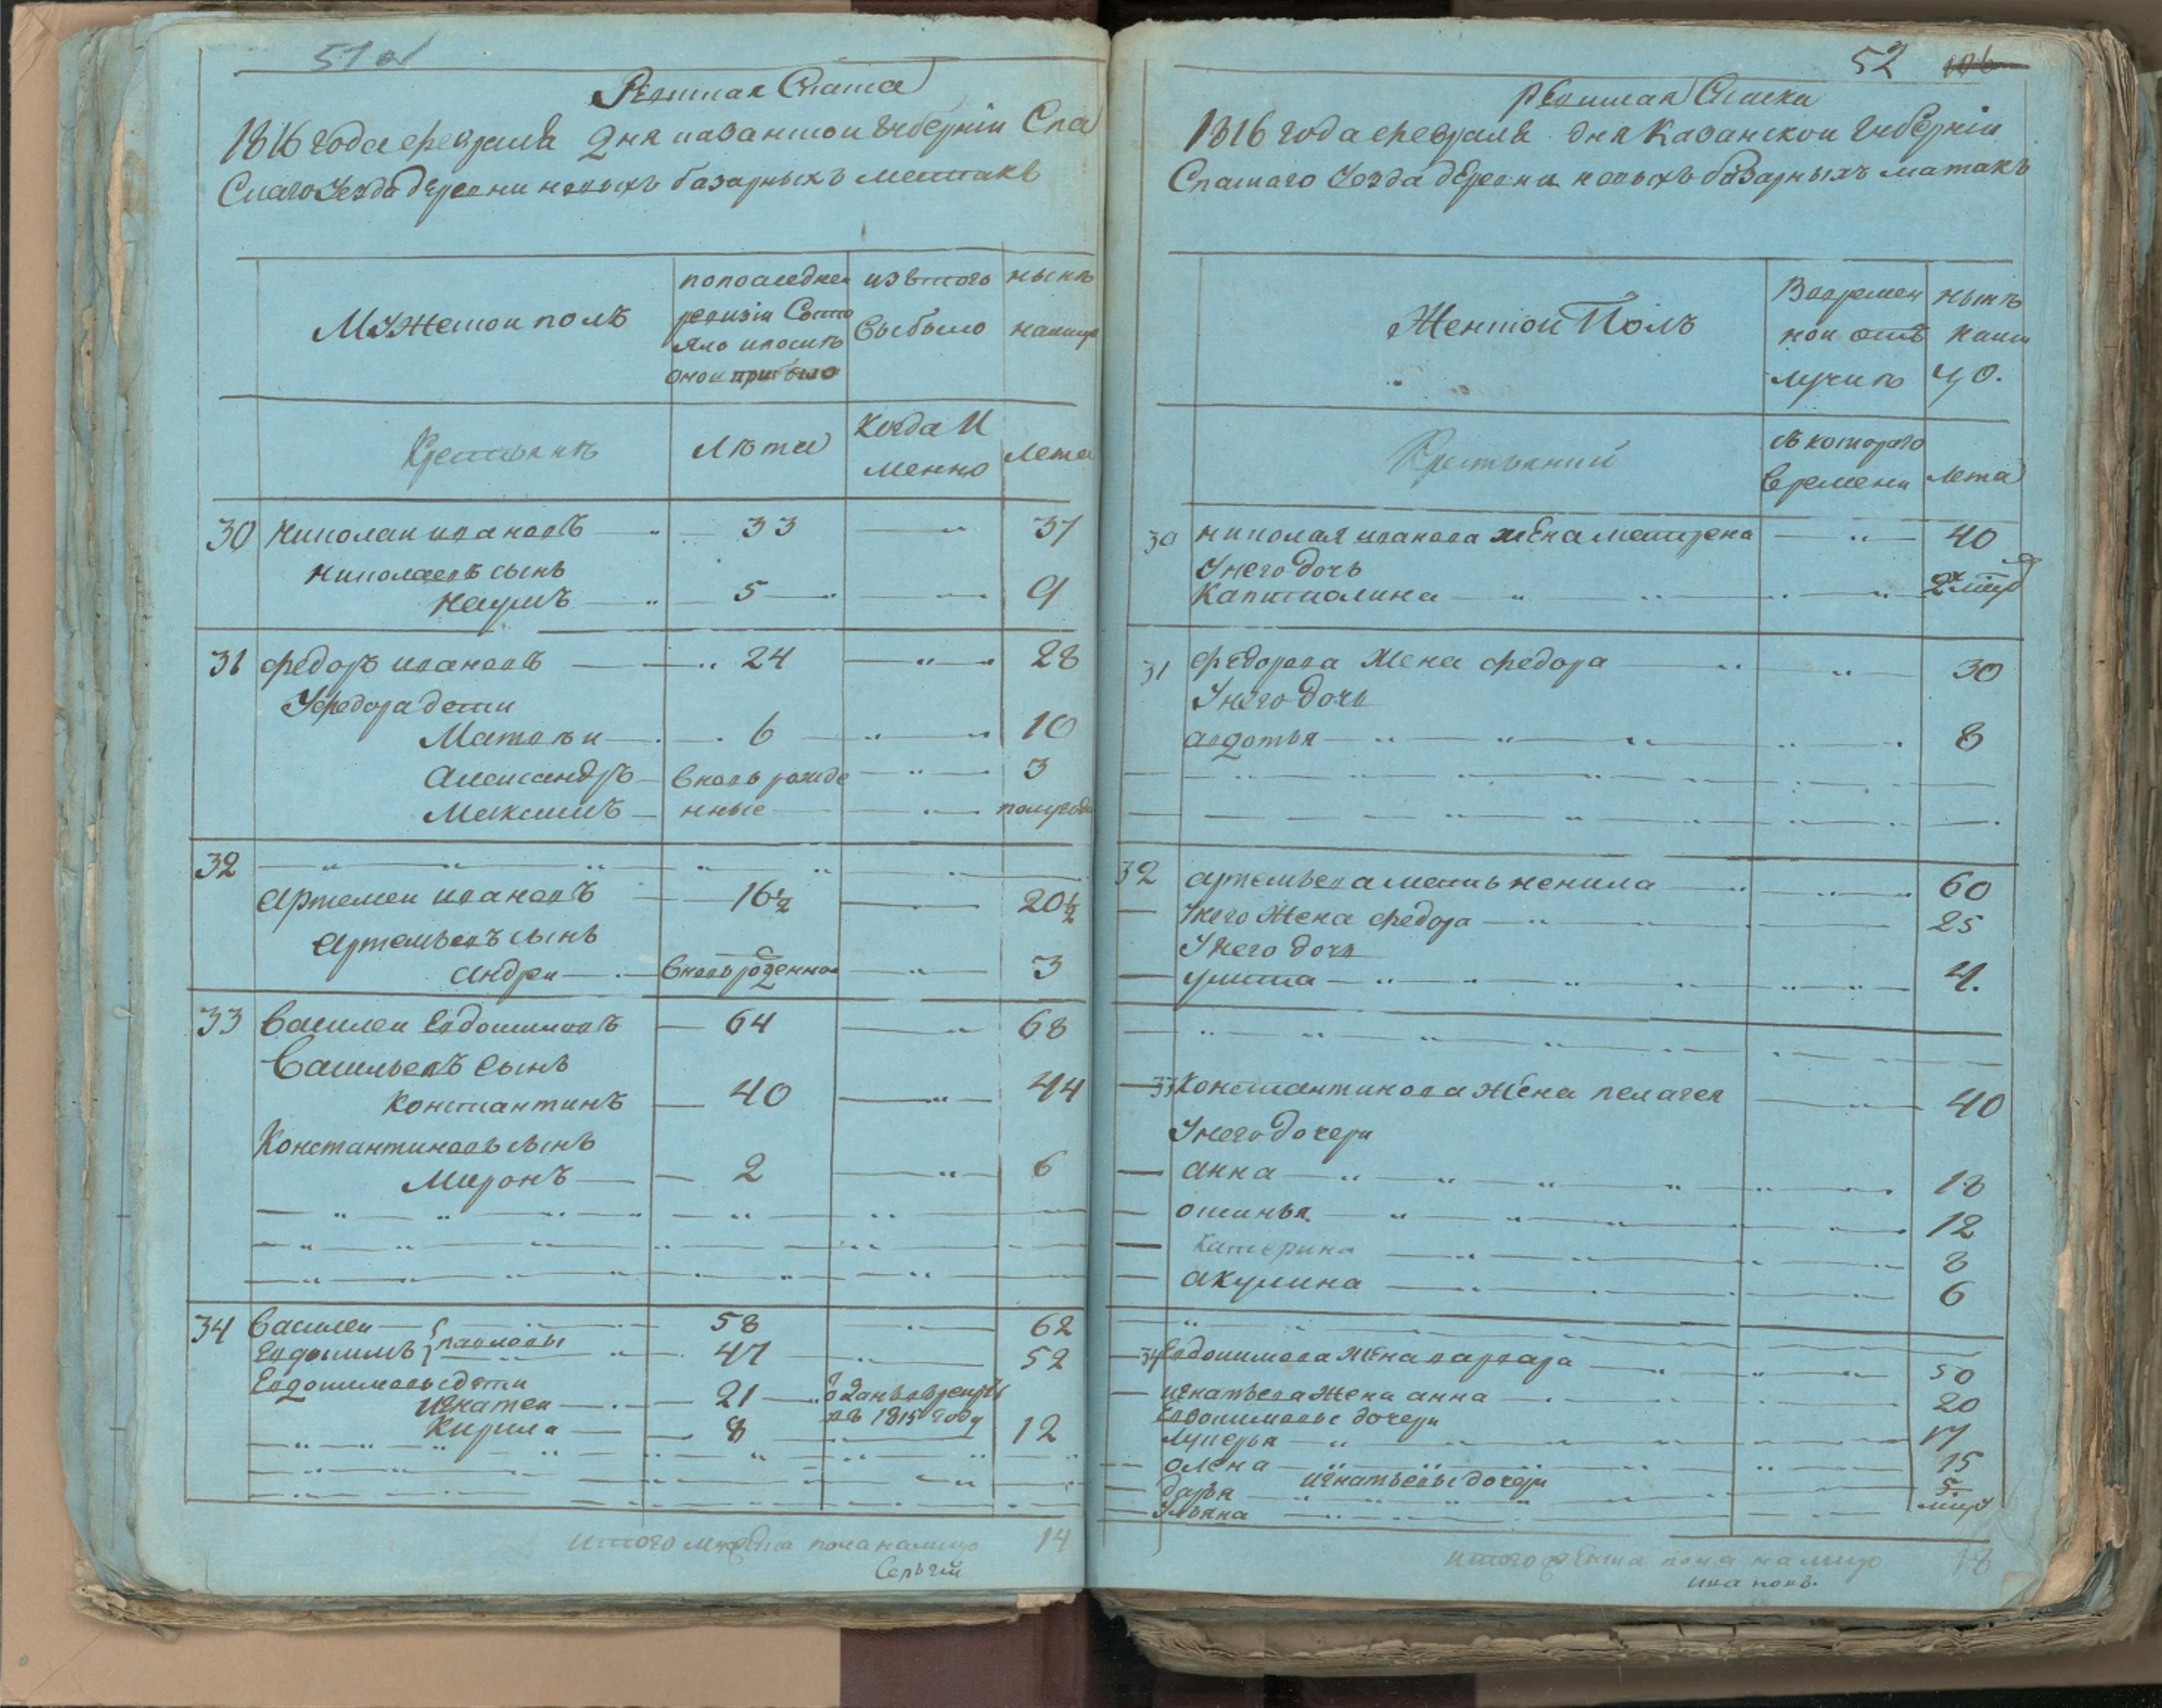 51 об
Ревиская Скаска
1816 года февраля 2 дня казанской губернии Спа
Скаго Уезда деревни новыхъ базарныхъ матакъ
Мужескои полъ
попоследнеи
ревизiи Состо
яло ипослъ
онои прибыло
изътого
Выбыло
нынъ
налицо
Крестьянъ
Лъта
Когда И
менно
Лета
30 николаи ивановъ 33 37
николаевъ сынъ
наумъ 5 9
31 федоръ ивановъ 24 28
Уфедора дети
Матвъи 6 10
Александръ вновь рожде 3
Максимъ нные полугода
32
Артемеи ивановъ 16½ 20½
Артемьевъ сынъ
Андреи вновьроденнои 3
33 Василеи Евдокимовъ 64 68
Васильевъ Сынъ
Константинъ 40 44
Константиновъ сынъ
Миронъ 2 6
34 Василеи павловы 58 62
Евдокимъ 47 52
Евдокимовы дети
Игнатеи 21 оданъ врекруты
въ 1815 году
Кирила 8 12
итого мужеска пола налицо 14
Сергей
52 106
ревиская Скаска
1816 года февраля дня Казанскои губернiи
Спаскаго Уезда деревни новыхъ базарныхъ матакъ
Женскои Полъ
Вовремен
нои отъ
лучкъ
нынъ
нали
цо.
Крестьянкий
съ котораго
Времени
лета
30 николая иванова жена матрена 40
Унего дочь
Капиталина
31 Федорова Жена федора 30
Унего дочь
авдотья 8
32 артемьева мать ненила 60
Унего Жена федора 25
Унего дочь
улита 4.
33 Константинова Жена пелагея 40
Унего дочери
анна 18
офинья 12
Катерина 8
акулина 6
34 Евдокимова жена варвара 50
игнатьева Жена анна 20
Евдокимовы дочери
Лукерья 17
олена 15
игнатьевы дочери
дарья 5.
Ульяна
итого женска пола налицо 18